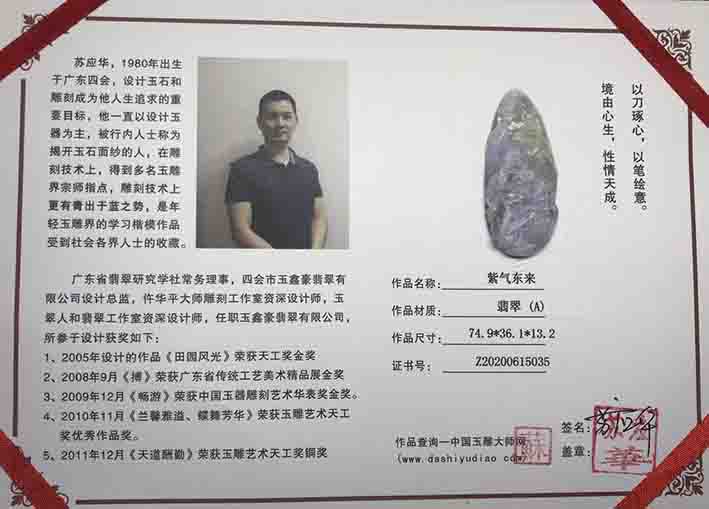 苏应华，1980年出生
于广东四会，设计玉石和
雕刻成为他人生追求的重
要目标，他一直以设计玉
器为主，被行内人士称为
揭开玉石面纱的人，在雕
刻技术上，得到多名玉雕
界宗师指点，雕刻技术上
更有青出于蓝之势，是年
轻玉雕界的学习楷模作品
受到社会各界人士的收藏。
以刀琢心，以笔绘意。
境由心生，性情天成。
广东省翡翠研究学社常务理事，四会市玉鑫豪翡翠有
限公司设计总监，仵华平大师雕刻工作室资深设计师，玉
翠人和翡翠工作室资深设计师，任职玉鑫豪翡翠有限公司，
所参于设计获奖如下：
1、2005年设计的作品《田园风光》荣获天工奖金奖
2、2008年9月《搏》荣获广东省传统工艺美术精品展金奖
3、2009年12月《畅游》荣获中国玉器雕刻艺术华表奖金奖。
4、2010年11月《兰馨雅溢、蝶舞芳华》荣获玉雕艺术天工
奖优秀作品奖。
5、2011年12月《天道酬勤》荣获玉雕艺术天工奖铜奖
作品名称： 紫气东来
作品材质： 翡翠 (A)
作品尺寸： 74.9*36.1*13.2
证书号： Z20200615035
签名：
盖章：
作品查询—中国玉雕大师网
(www.dashiyudiao.com)
蘇
華